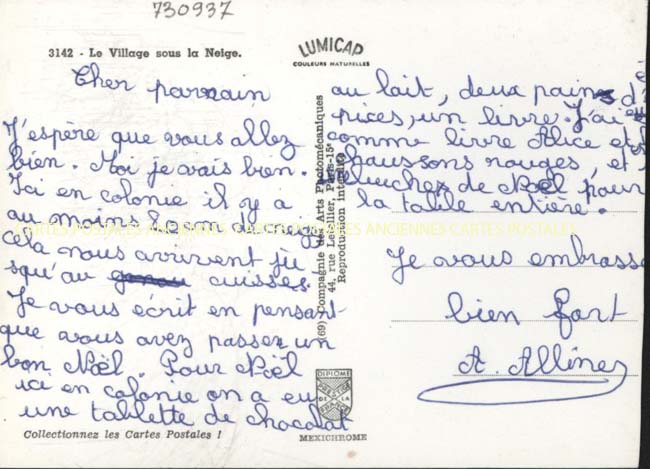 730937
3142 - Le Village sous la Neige.
LUMICAP
COULEURS NATURELLES
Cher parrain
J'espère que vous allez
bien. Moi je vais bien.
Ici en colonie il y a
au moins 80cm de neige
cela nous arrivent ju
squ'au cuisses.
Je vous écrit en pensant
que vous avez passez un
bon Noël. Pour Noël
ici en colonie on a eu
une tablette de chocolat
au lait, deux pains d'é
pices, un livre. J'ai eu
comme livre Alice et
chaussons rouges, et
de Noël pour
la table entière.
Je vous embrasse
bien fort
A. Allinez
(69) Compagnie des Arts Photomécaniques
44, rue Letellier, Paris-15e
Reproduction interdite
CARTES POSTALES ANCIENNES CARTES POSTALES ANCIENNES CARTES POSTALES
DIPLOME
DE LA
MEXICHROME
Collectionnez les Cartes Postales !